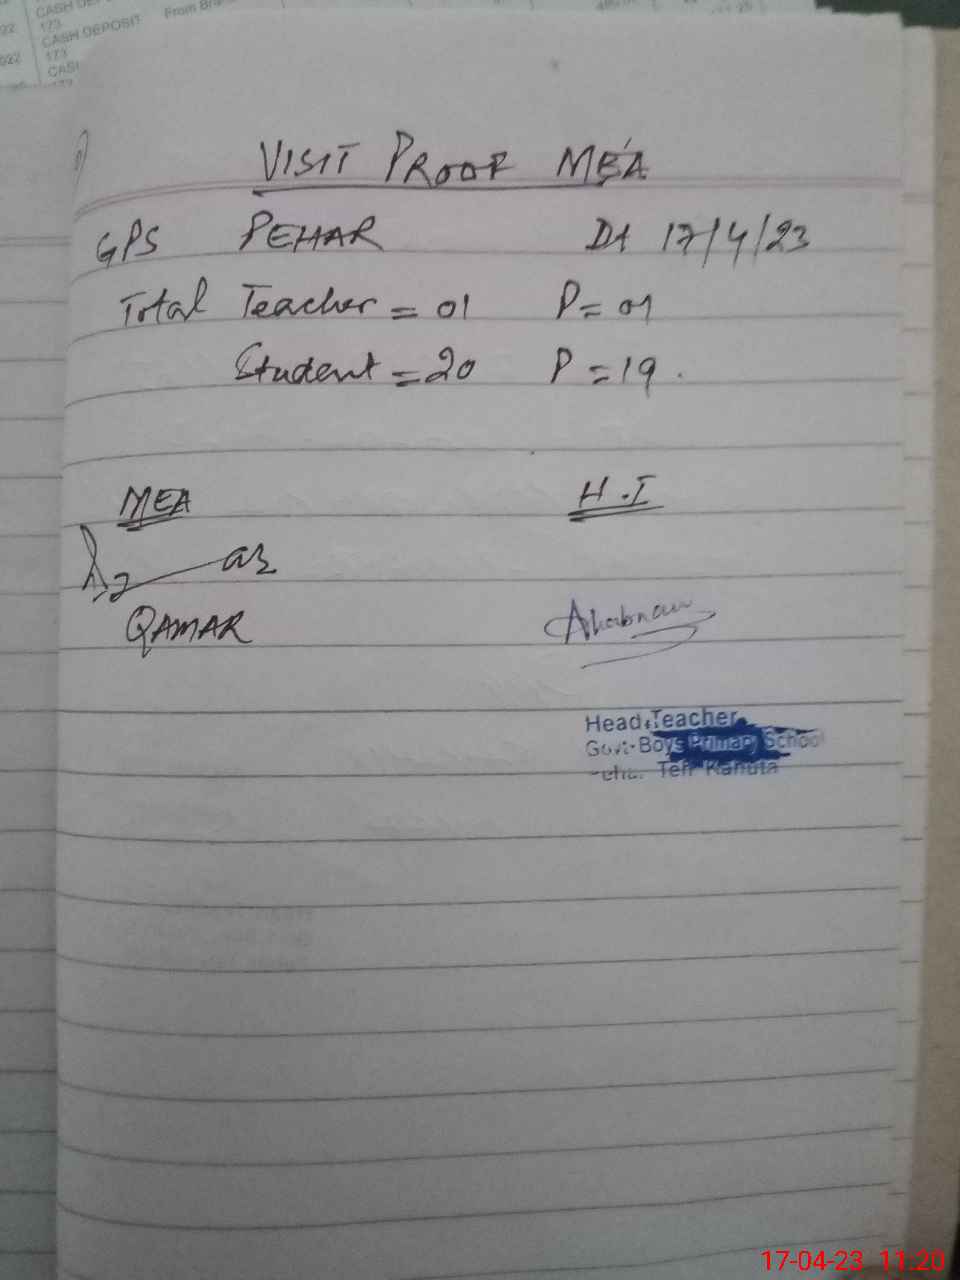 CASH DEPOSIT
173
CASH DEPOSIT From
173
VISIT PROOF MEA
GPS PEHAR Dt 17/4/23
Total Teacher = 01 P = 01
Student = 20 P = 19.
MEA H.T
QAMAR
Head Teacher
Govt. Boys Primary School
Teh Kahuta
17-04-23 11:20